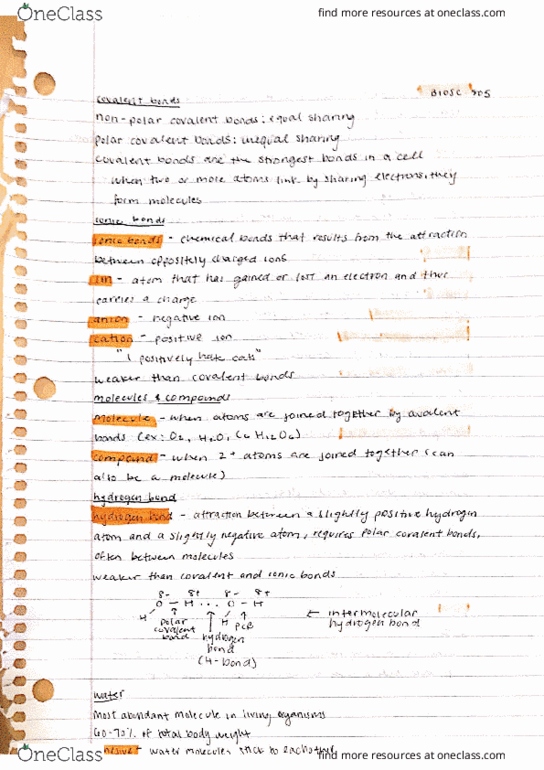 OneClass
find more resources at oneclass.com
BIOSC 205
covalent bonds
non-polar covalent bonds: equal sharing
polar covalent bonds: unequal sharing
covalent bonds are the strongest bonds in a cell
when two or more atoms link by sharing electrons, they
form molecules
ionic bonds
ionic bonds - chemical bonds that results from the attraction
between oppositely charged ions
ion - atom that has gained or lost an electron and thus
carries a charge
anion - negative ion
cation - positive ion
"I positively hate cats"
weaker than covalent bonds
molecules & compounds
molecule - when atoms are joined together by covalent
bonds (ex: O₂, H₂O, C₆H₁₂O₆)
compound - when 2+ atoms are joined together (can
also be a molecule)
hydrogen bond
hydrogen bond - attraction between a slightly positive hydrogen
atom and a slightly negative atom, requires polar covalent bonds,
often between molecules
weaker than covalent and ionic bonds
δ- δ+ δ- δ+
O - H ... O - H
H ↑ ↑ H ↑
polar covalent bond
hydrogen bond
(H-bond)
PCB
← intermolecular
hydrogen bond
water
most abundant molecule in living organisms
60-70% of total body weight
water molecules stick to each other
OneClass
find more resources at oneclass.com